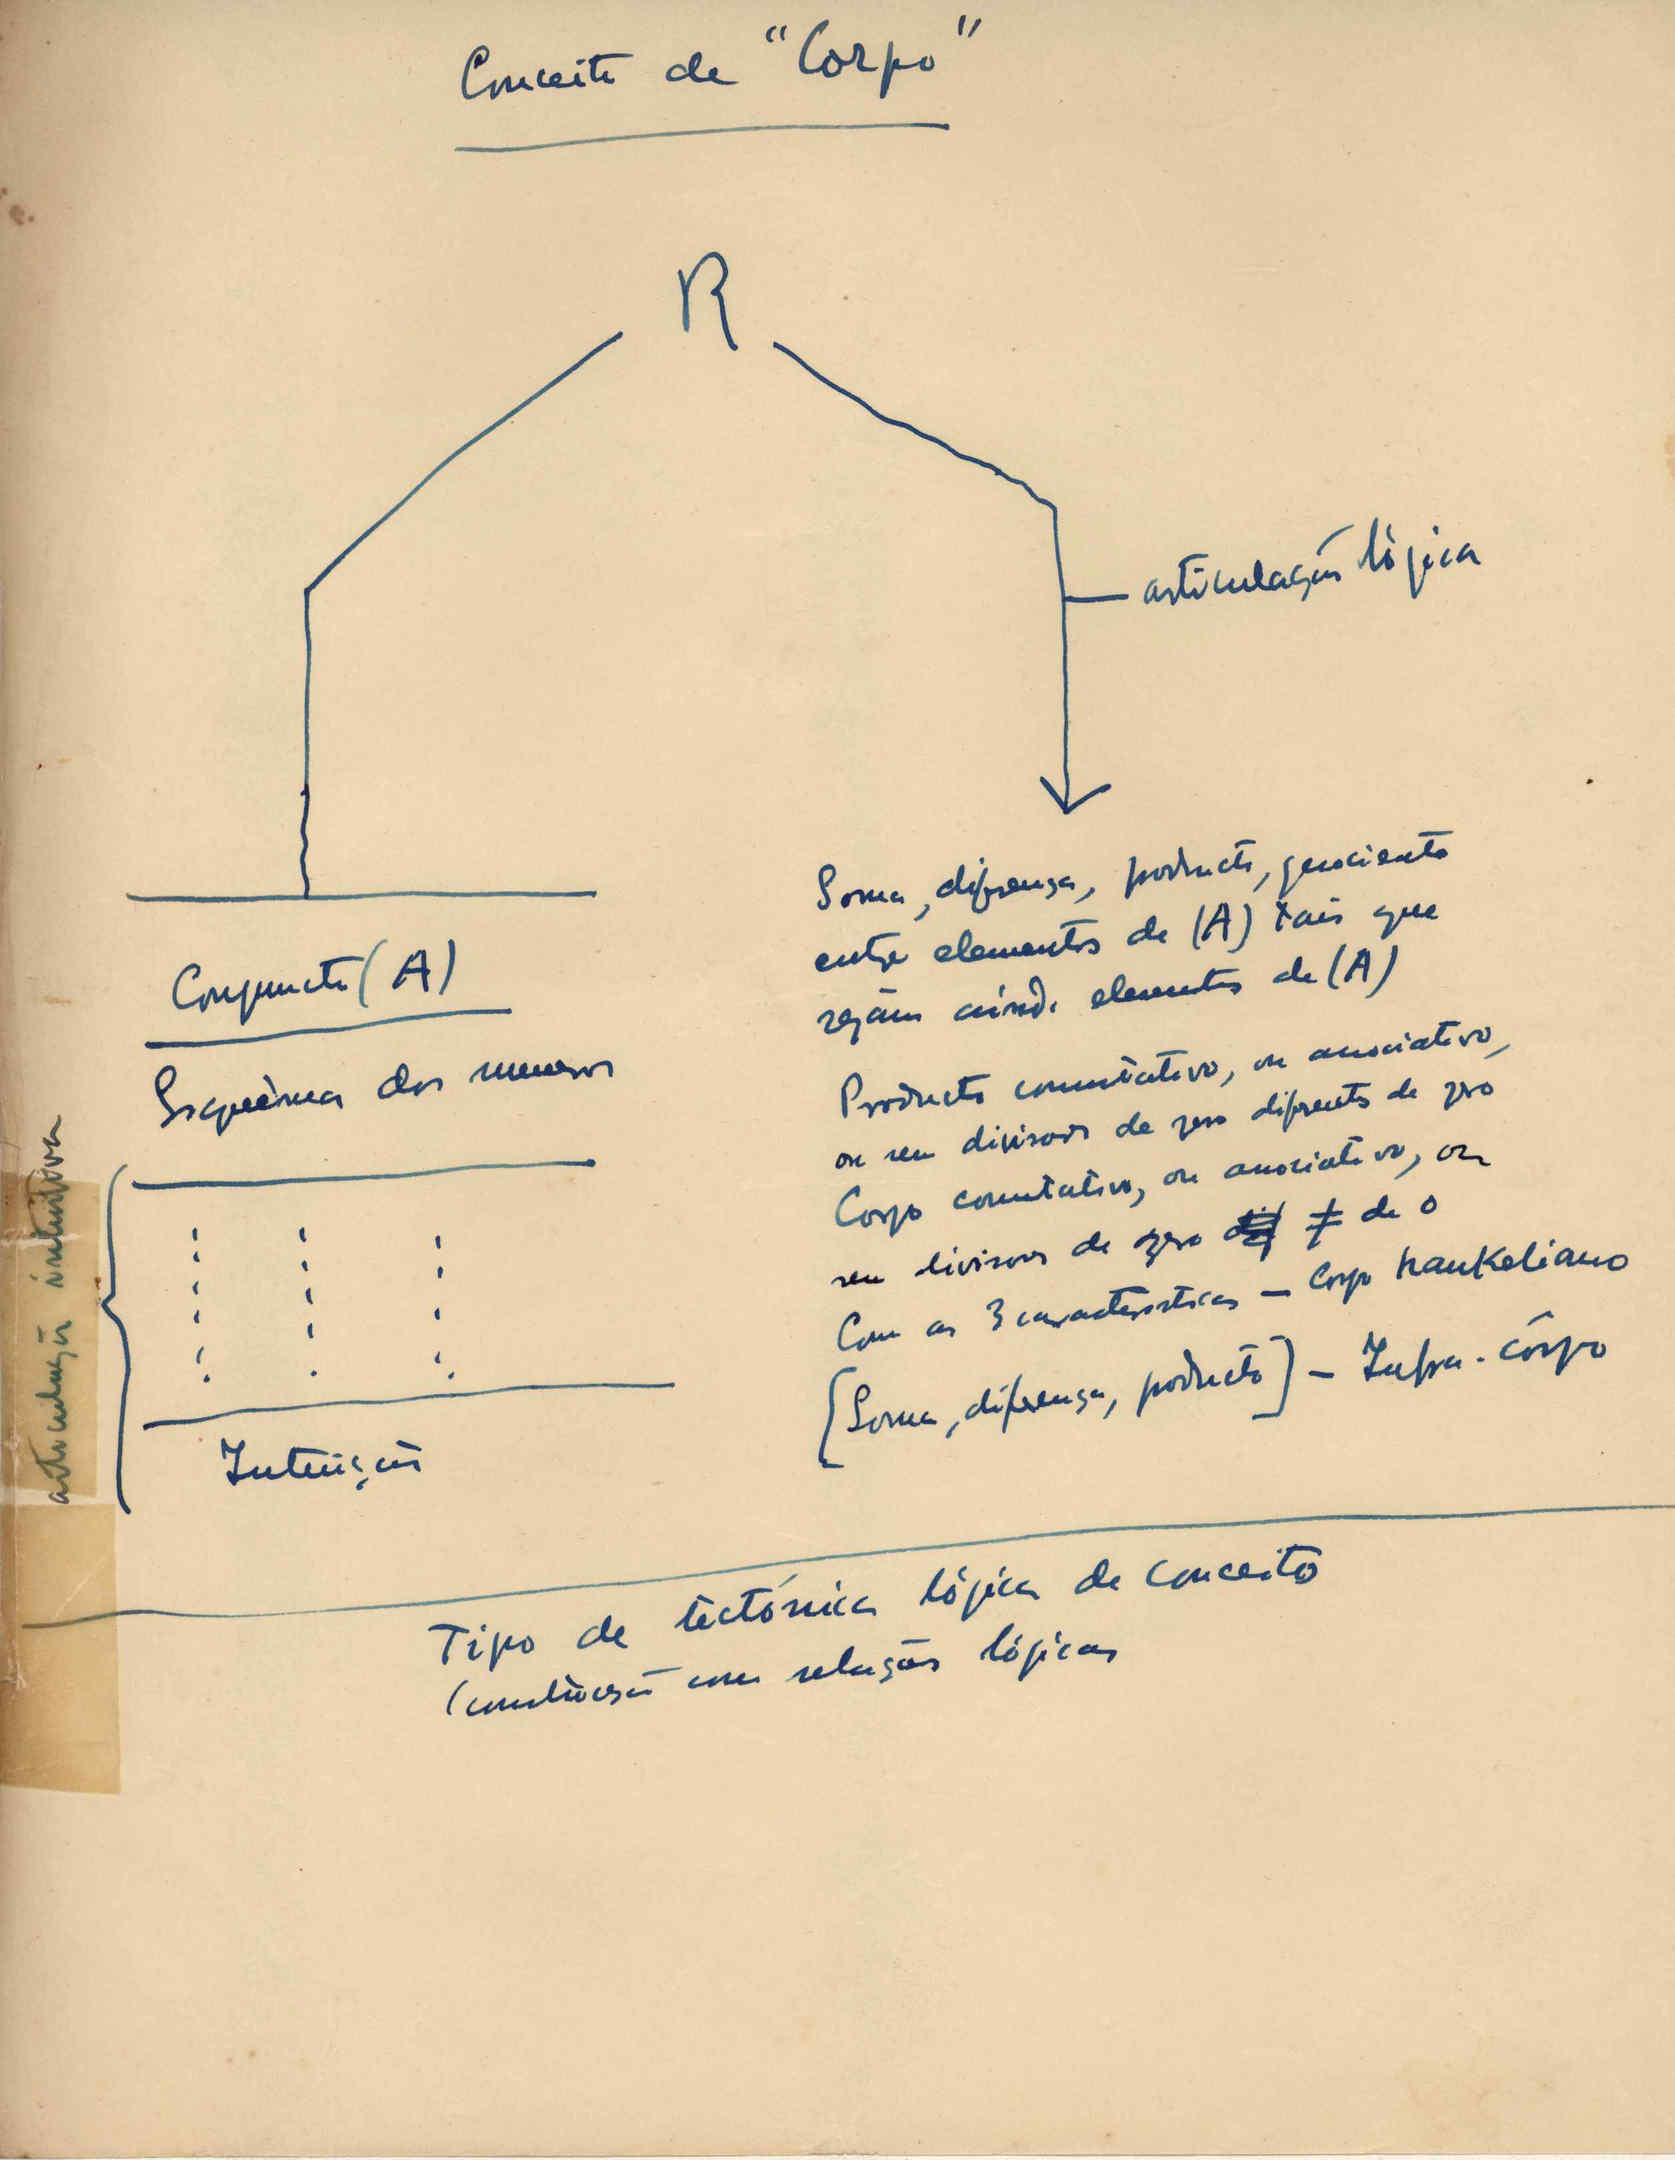 Conceito de "Corpo"
R
articulação lógica
Conjuncto (A)
Esquêma dos
articulação intuitiva
Intuição
Soma, diferença, producto, quociente
entre elementos de (A) tais que
sejam ainda elementos de (A)
Producto comutativo, ou associativo,
ou sem divisores de zero diferentes de zero
Corpo comutativo, ou associativo, ou
sem divisores de zero ≠ de 0
Com as 3 caracteristicas – Corpo hankeliano
[Soma, diferença, producto] – Infra-côrpo
Tipo de tectónica lógica de conceito
com relações lógicas